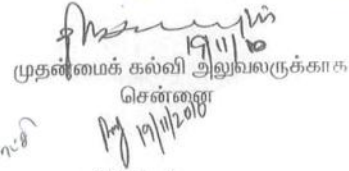 19/11/10
முதன்மைக் கல்வி அலுவலருக்காக
சென்னை
19/11/2010